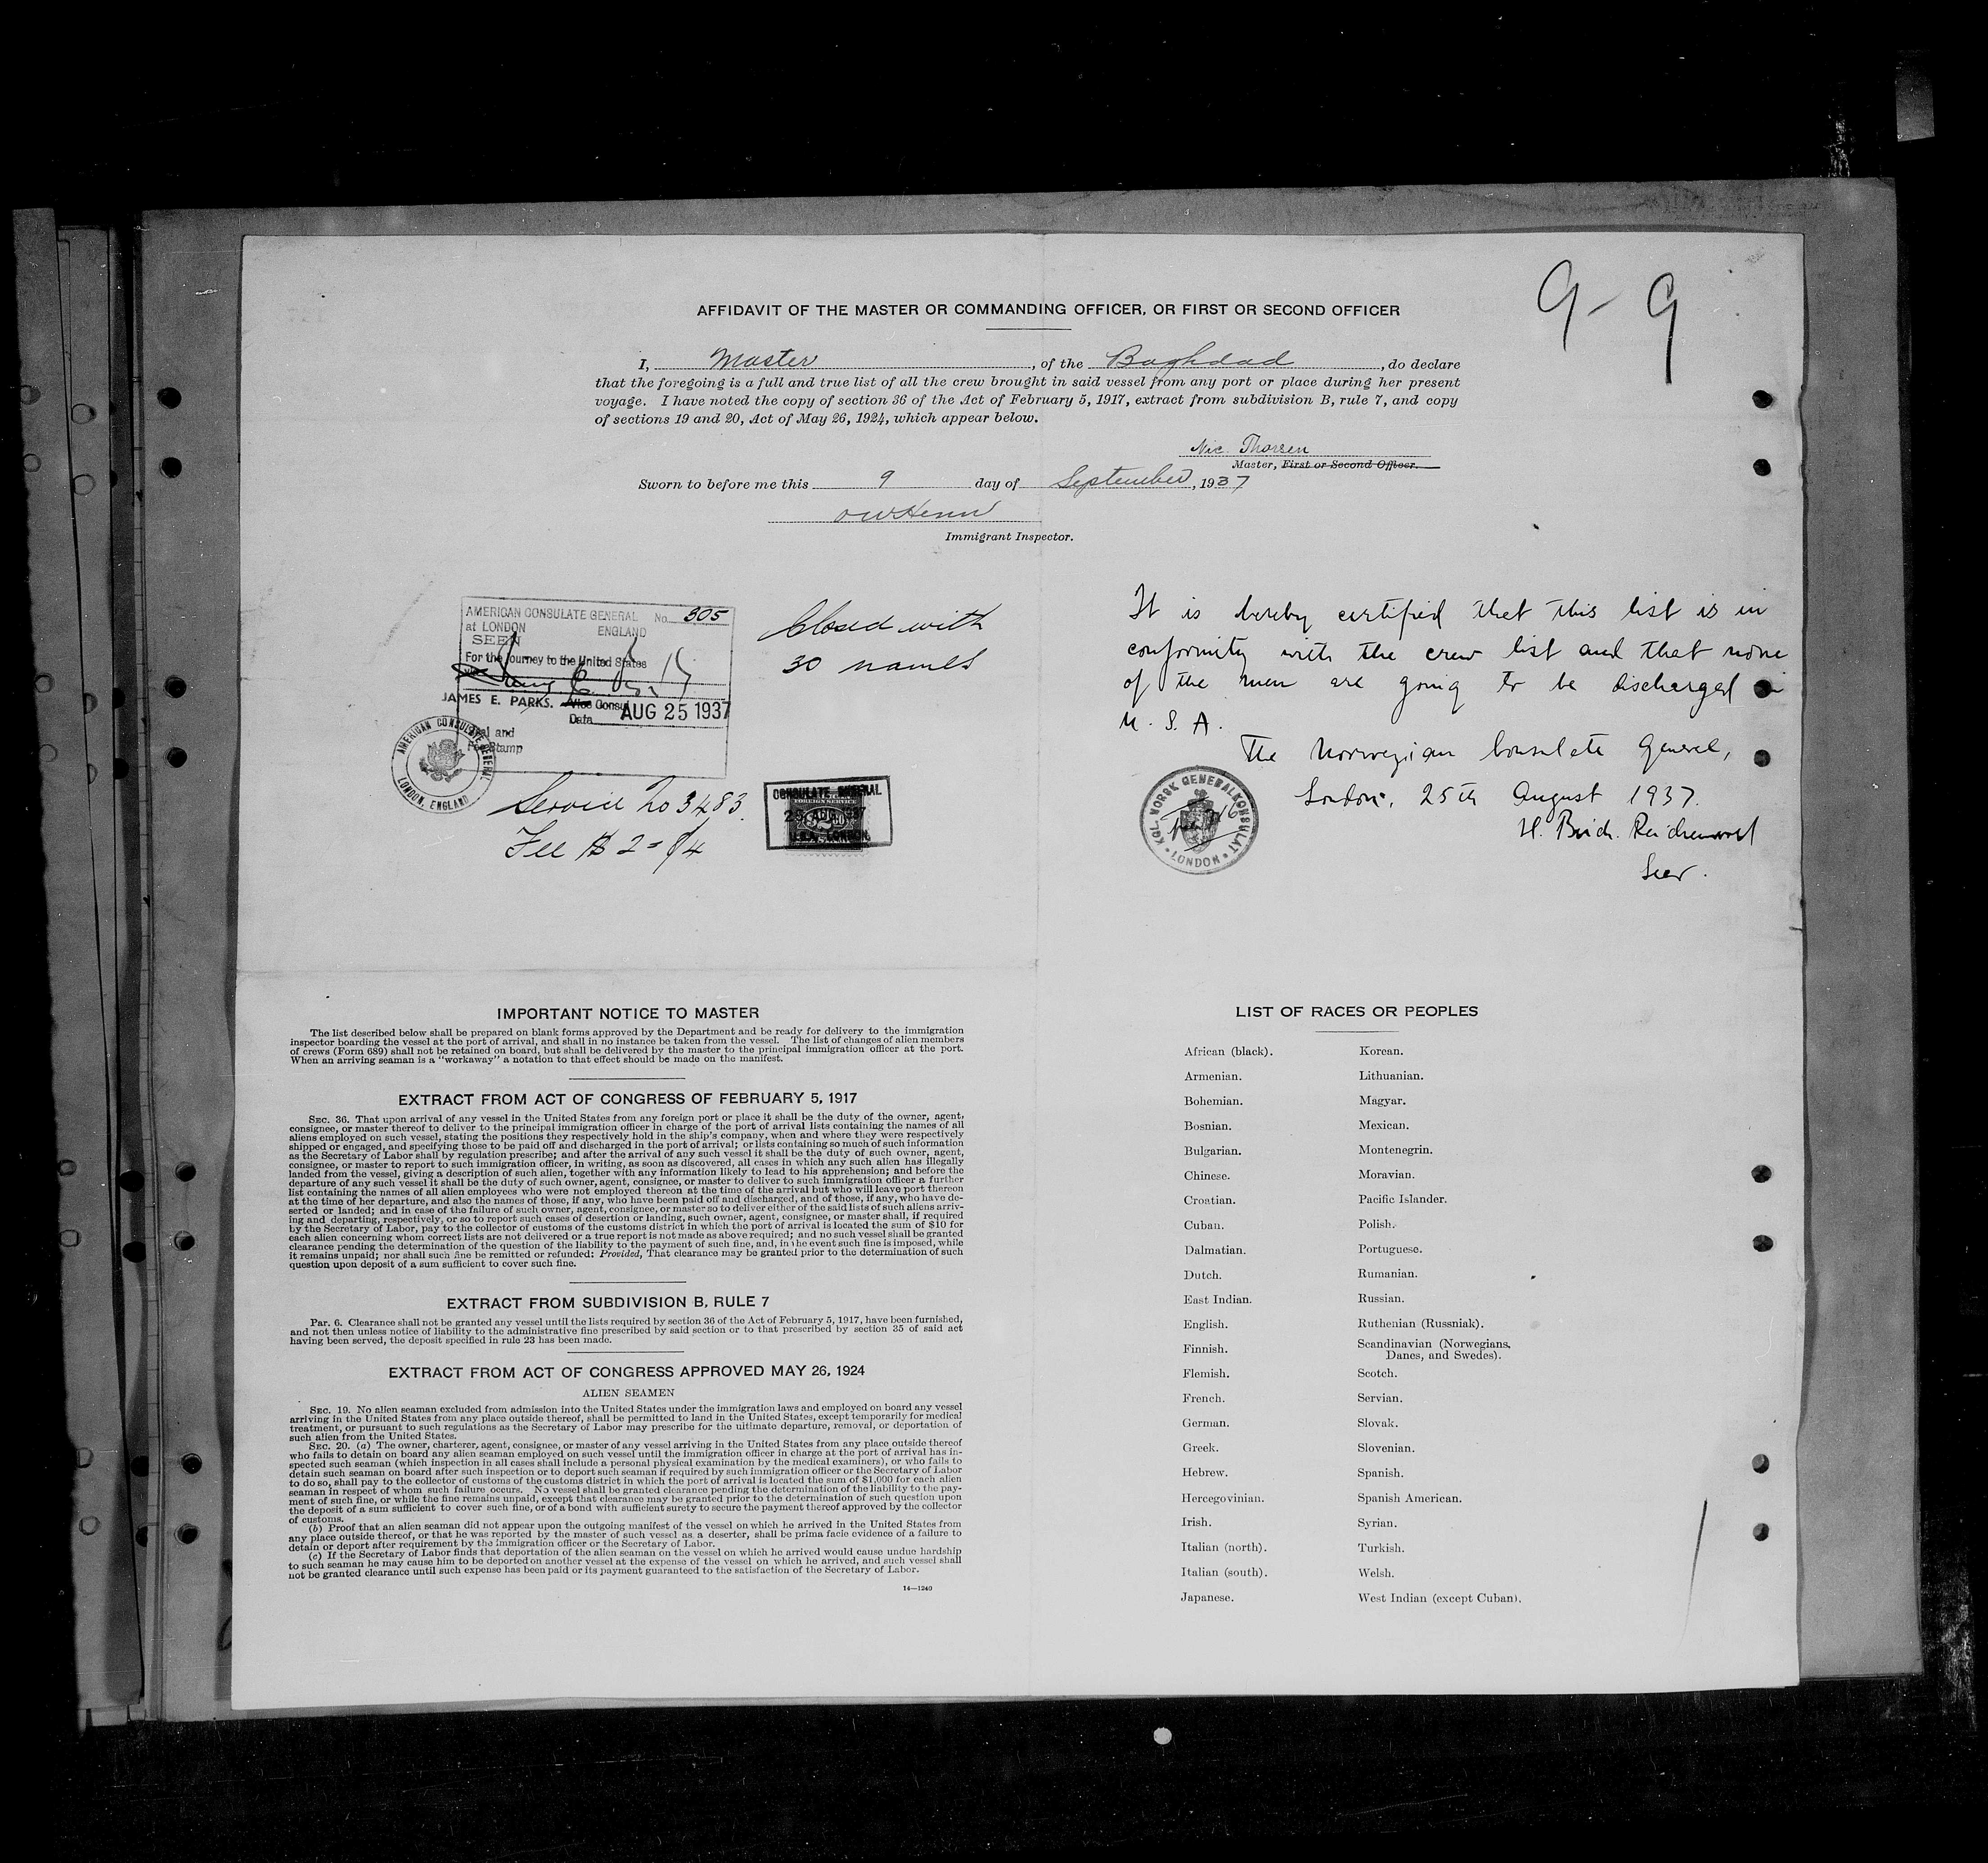 9- 9
AFFIDAVIT OF THE MASTER OR COMMANDING OFFICER, OR FIRST OR SECOND OFFICER
I, Master, of the Baghdad, do declare
that the foregoing is a full and true list of all the crew brought in said vessel from any port or place during her present
voyage. I have noted the copy of section 36 of the Act of February 5, 1917, extract from subdivision B, rule 7, and copy
of sections 19 and 20, Act of May 26, 1924, which appear below.
Nic. Thorsen
Master, First or Second Officer.
Sworn to before me this 9 day of September, 1937
Immigrant Inspector.
AMERICAN CONSULATE GENERAL No. 305
at LONDON ENGLAND
SEEN
For the journey to the United States
JAMES E. PARKS. Vice Consul
Date AUG 25 1937
Seal and
Fee Stamp
AMERICAN CONSULATE GENERAL
LONDON, ENGLAND
Service No 3483.
Fee $ 2=
Closed with
30 names
CONSULATE GENERAL
FOREIGN SERVICE
U.S.A. LONDON
It is hereby certified that this list is in
conformity with the crew list and that none
of the men are going to be discharged in
U. S. A.
The Norwegian Consulate General,
London, 25th August 1937.
KGL. NORSK GENERALKONSULAT
LONDON
IMPORTANT NOTICE TO MASTER
The list described below shall be prepared on blank forms approved by the Department and be ready for delivery to the immigration
inspector boarding the vessel at the port of arrival, and shall in no instance be taken from the vessel. The list of changes of alien members
of crews (Form 689) shall not be retained on board, but shall be delivered by the master to the principal immigration officer at the port.
When an arriving seaman is a "workaway" a notation to that effect should be made on the manifest.
EXTRACT FROM ACT OF CONGRESS OF FEBRUARY 5, 1917
SEC. 36. That upon arrival of any vessel in the United States from any foreign port or place it shall be the duty of the owner, agent,
consignee, or master thereof to deliver to the principal immigration officer in charge of the port of arrival lists containing the names of all
aliens employed on such vessel, stating the positions they respectively hold in the ship's company, when and where they were respectively
shipped or engaged, and specifying those to be paid off and discharged in the port of arrival; or lists containing so much of such information
as the Secretary of Labor shall by regulation prescribe; and after the arrival of any such vessel it shall be the duty of such owner, agent,
consignee, or master to report to such immigration officer, in writing, as soon as discovered, all cases in which any such alien has illegally
landed from the vessel, giving a description of such alien, together with any information likely to lead to his apprehension; and before the
departure of any such vessel it shall be the duty of such owner, agent, consignee, or master to deliver to such immigration officer a further
list containing the names of all alien employees who were not employed thereon at the time of the arrival but who will leave port thereon
at the time of her departure, and also the names of those, if any, who have been paid off and discharged, and of those, if any, who have de-
serted or landed; and in case of the failure of such owner, agent, consignee, or master so to deliver either of the said lists of such aliens arriv-
ing and departing, respectively, or so to report such cases of desertion or landing, such owner, agent, consignee, or master shall, if required
by the Secretary of Labor, pay to the collector of customs of the customs district in which the port of arrival is located the sum of $10 for
each alien concerning whom correct lists are not delivered or a true report is not made as above required; and no such vessel shall be granted
clearance pending the determination of the question of the liability to the payment of such fine, and, in the event such fine is imposed, while
it remains unpaid; nor shall such fine be remitted or refunded: Provided, That clearance may be granted prior to the determination of such
question upon deposit of a sum sufficient to cover such fine.
EXTRACT FROM SUBDIVISION B, RULE 7
Par. 6. Clearance shall not be granted any vessel until the lists required by section 36 of the Act of February 5, 1917, have been furnished,
and not then unless notice of liability to the administrative fine prescribed by said section or to that prescribed by section 35 of said act
having been served, the deposit specified in rule 23 has been made.
EXTRACT FROM ACT OF CONGRESS APPROVED MAY 26, 1924
ALIEN SEAMEN
SEC. 19. No alien seaman excluded from admission into the United States under the immigration laws and employed on board any vessel
arriving in the United States from any place outside thereof, shall be permitted to land in the United States, except temporarily for medical
treatment, or pursuant to such regulations as the Secretary of Labor may prescribe for the ultimate departure, removal, or deportation of
such alien from the United States.
SEC. 20. (a) The owner, charterer, agent, consignee, or master of any vessel arriving in the United States from any place outside thereof
who fails to detain on board any alien seaman employed on such vessel until the immigration officer in charge at the port of arrival has in-
spected such seaman (which inspection in all cases shall include a personal physical examination by the medical examiners), or who fails to
detain such seaman on board after such inspection or to deport such seaman if required by such immigration officer or the Secretary of Labor
to do so, shall pay to the collector of customs of the customs district in which the port of arrival is located the sum of $1,000 for each alien
seaman in respect of whom such failure occurs. No vessel shall be granted clearance pending the determination of the liability to the pay-
ment of such fine, or while the fine remains unpaid, except that clearance may be granted prior to the determination of such question upon
the deposit of a sum sufficient to cover such fine, or of a bond with sufficient surety to secure the payment thereof approved by the collector
of customs.
(b) Proof that an alien seaman did not appear upon the outgoing manifest of the vessel on which he arrived in the United States from
any place outside thereof, or that he was reported by the master of such vessel as a deserter, shall be prima facie evidence of a failure to
detain or deport after requirement by the immigration officer or the Secretary of Labor.
(c) If the Secretary of Labor finds that deportation of the alien seaman on the vessel on which he arrived would cause undue hardship
to such seaman he may cause him to be deported on another vessel at the expense of the vessel on which he arrived, and such vessel shall
not be granted clearance until such expense has been paid or its payment guaranteed to the satisfaction of the Secretary of Labor.
14—1240
LIST OF RACES OR PEOPLES
African (black).
Armenian.
Bohemian.
Bosnian.
Bulgarian.
Chinese.
Croatian.
Cuban.
Dalmatian.
Dutch.
East Indian.
English.
Finnish.
Flemish.
French.
German.
Greek.
Hebrew.
Hercegovinian.
Irish.
Italian (north).
Italian (south).
Japanese.
Korean.
Lithuanian.
Magyar.
Mexican.
Montenegrin.
Moravian.
Pacific Islander.
Polish.
Portuguese.
Rumanian.
Russian.
Ruthenian (Russniak).
Scandinavian (Norwegians,
Danes, and Swedes).
Scotch.
Servian.
Slovak.
Slovenian.
Spanish.
Spanish American.
Syrian.
Turkish.
Welsh.
West Indian (except Cuban).